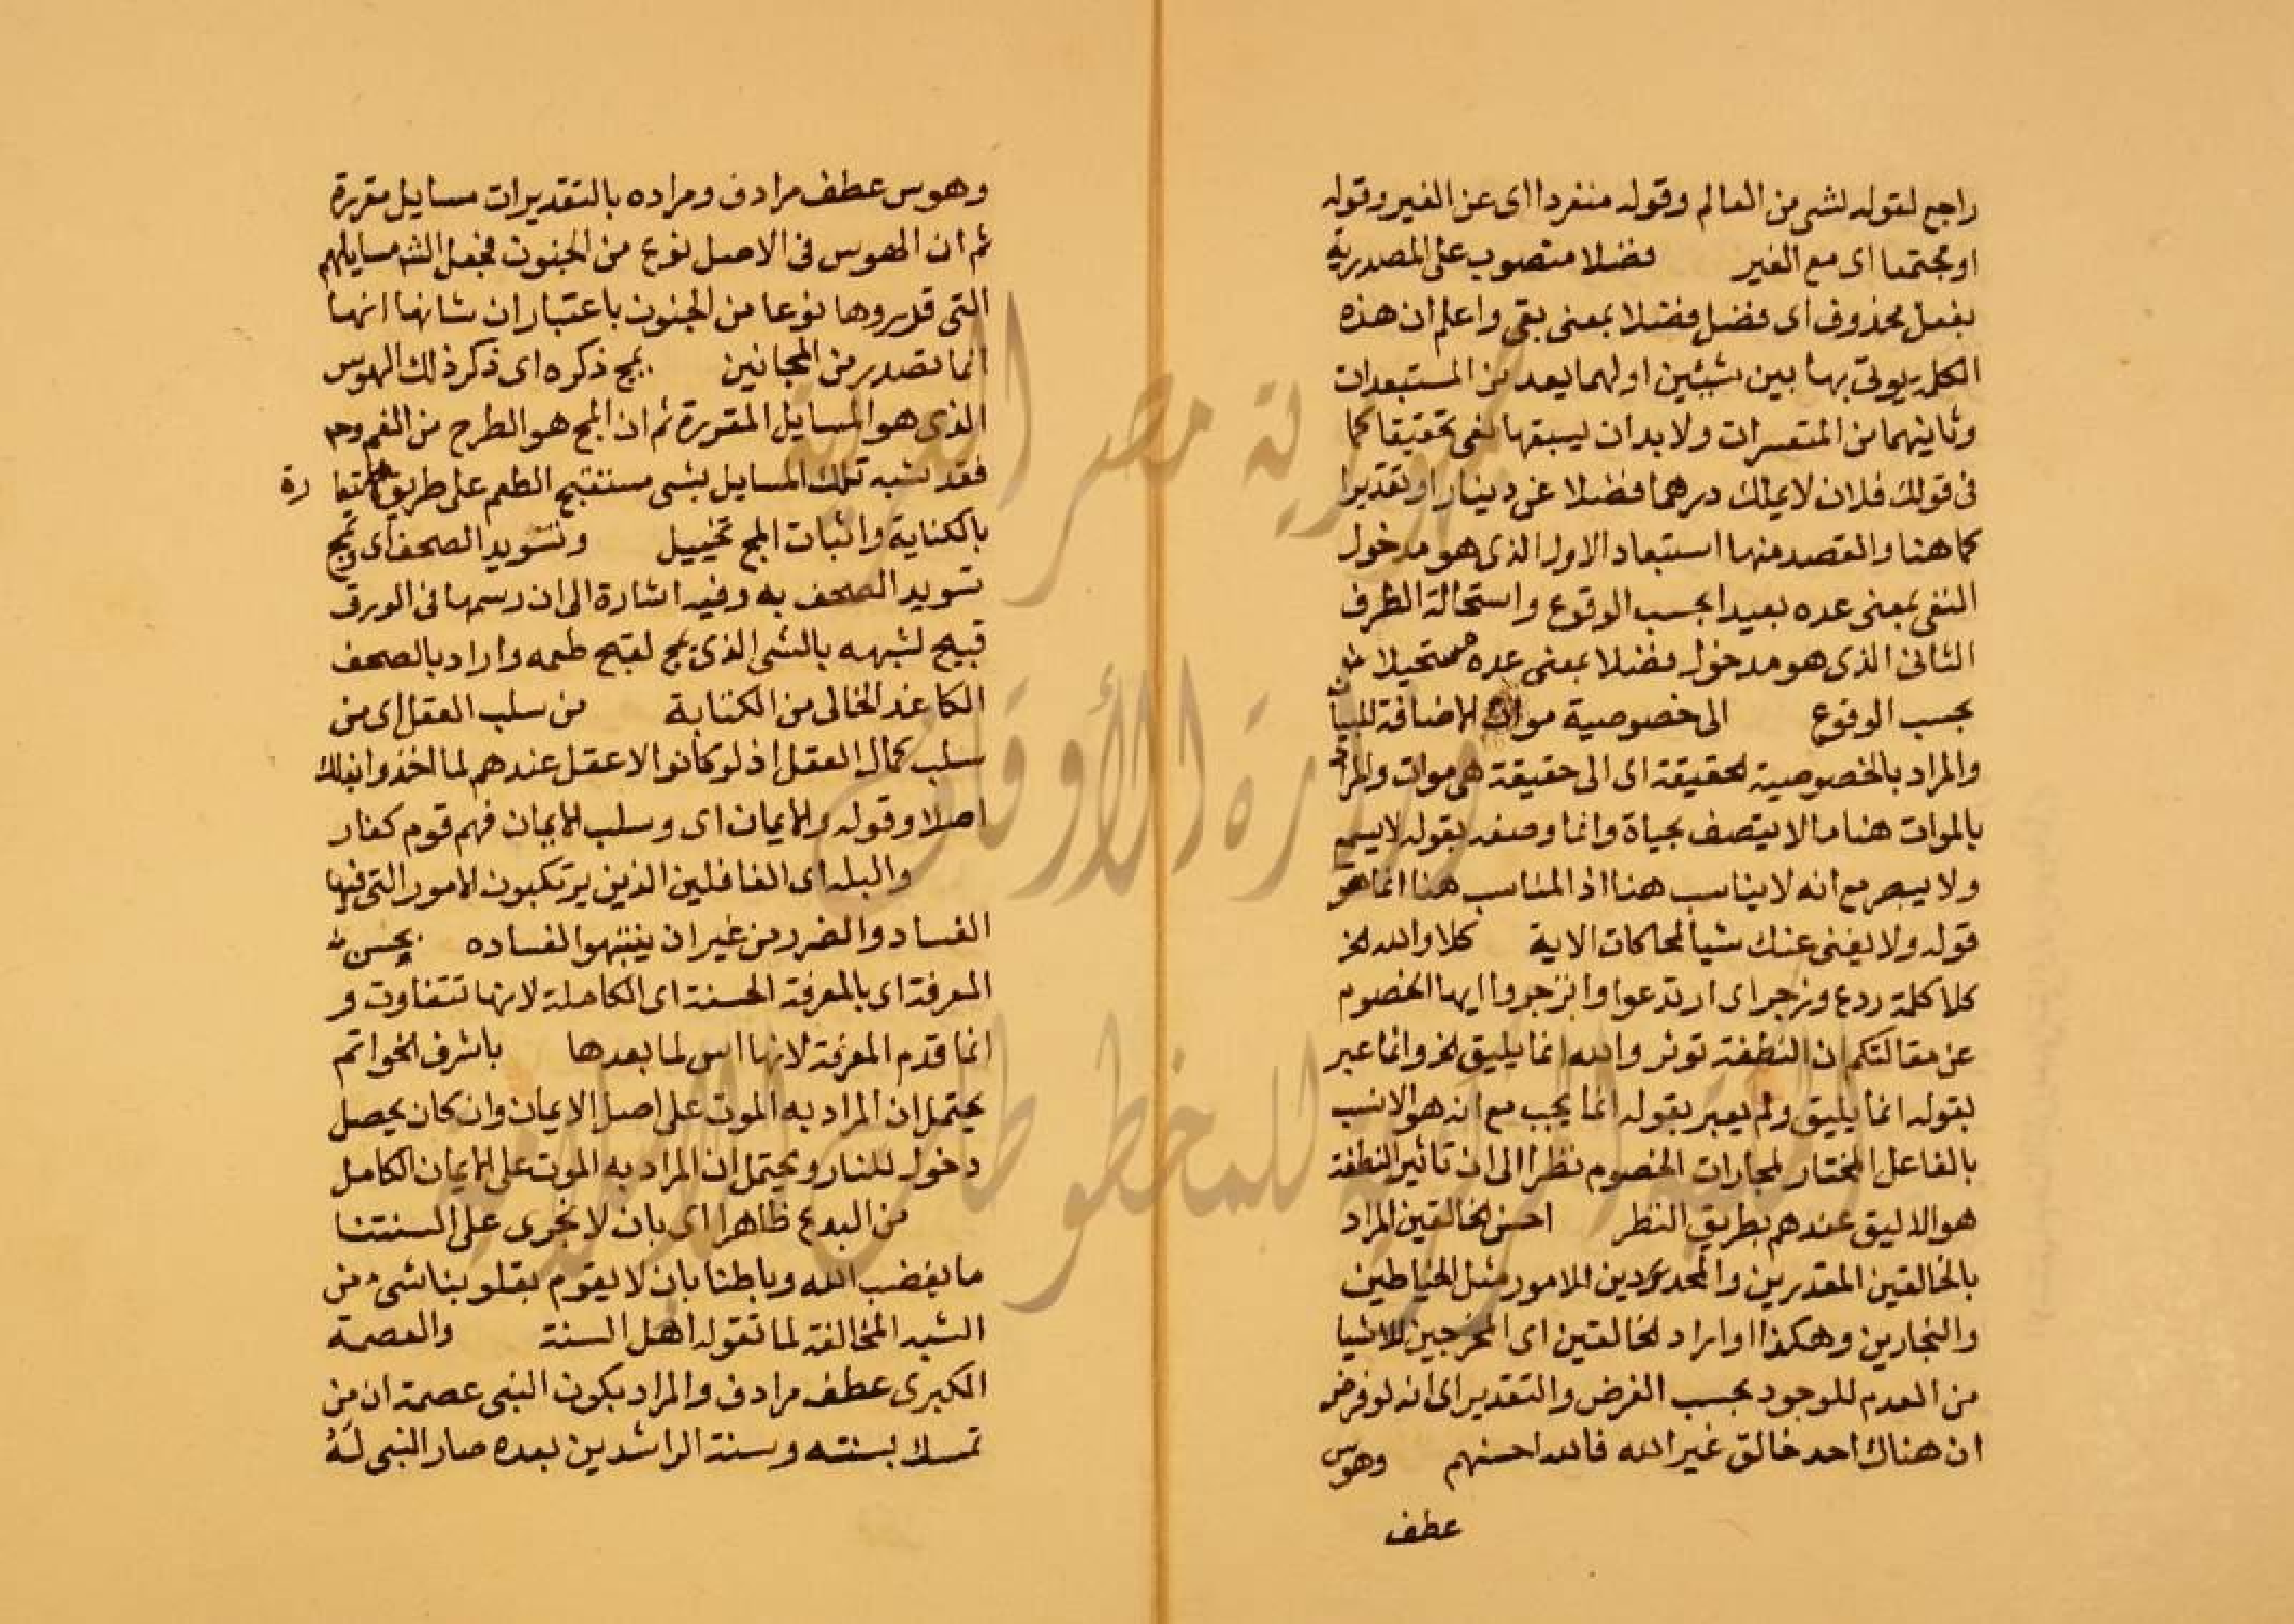 راجع لقوله لشى من العالم وقوله منفردا اى عن الغير وقوله
او مجتمعا اى مع الغير فضلا منصوب على المصدرية
بفعل محذوف اى فضل فضلا بمعنى بقى واعلم ان هذه
الكلمة يوتى بها بين شيئين اولهما يعد من المستبعدات
وثانيهما من المتعسرات ولابد ان يسبقها نفى تحقيقا كما
فى قولك فلان لا يملك درهما فضلا عن دينار او تقديرا
كما هنا والقصد منها استبعاد الاول الذى هو مدخول
النفى بمعنى عده بعيدا بحسب الوقوع واستحالة الطرف
الثانى الذى هو مدخول فضلا بمعنى عده مستحيلا
بحسب الوقوع الى خصوصية موات الاضافة للبيان
والمراد بالخصوصية الحقيقة اى الى حقيقة هى موات والمراد
بالموات هنا ما لا يتصف بحياة وانما وصفه بقوله لا يسمع
ولا يبصر مع انه لا يناسب هنا اذ المناسب هنا انما هو
قوله ولا يغنى عنك شيأ لمحاكات الاية كلا والله الخ
كلا كلمة ردع وزجر اى ارتدعوا وانزجروا ايها الخصوم
عن مقالتكم ان النطفة توثر والله انما يليق الخ وانما عبر
بقوله انما يليق ولم يعبر بقوله انما يجب مع انه هو الانسب
بالفاعل المختار لمجارات الخصوم نظرا الى ان تاثير النطفة
هو الاليق عندهم بطريق النظر احسن الخالقين المراد
بالخالقين المقدرين والمحددين للامور مثل الخياطين
والنجارين وهكذا او اراد الخالقين اى المخرجين للاشيا
من العدم للوجود بحسب الفرض والتقدير اى انه لو فرض
ان هناك احد خالق غير الله فالله احسنهم وهوس
عطف
وهوس عطف مرادف ومراده بالتقديرات مسايل مقررة
ثم ان الهوس فى الاصل نوع من الجنون فجعل الشه مسايلهم
التى قدروها نوعا من الجنون باعتبار ان شانها انها
انما تصدر من المجانين يمج ذكره اى ذكر ذلك الهوس
الذى هو المسايل المقررة ثم ان المج هو الطرح من الفم وح
فقد شبه تلك المسايل بشى مستقبح الطعم على طريق الاستعارة
بالكناية واثبات المج تخييل وتسويد الصحف اى ويمج
تسويد الصحف به وفيه اشارة الى ان رسمها فى الورق
قبيح لشبهه بالشى الذى يمج لقبح طعمه واراد بالصحف
الكاغد الخالى من الكتابة من سلب العقل اى من
سلب كمال العقل اذ لو كانوا لا عقل عندهم لما اخذوا بذلك
اصلا وقوله والايمان اى وسلب الايمان فهم قوم كفار
والبله اى الغافلين الذين يرتكبون الامور التى فيها
الفساد والضرر من غير ان ينتبهوا لفساده بحسن
المعرفة اى بالمعرفة الحسنة اى الكاملة لانها تتفاوت و
انما قدم المعرفة لانها اس لما بعدها باشرف الخواتم
يحتمل ان المراد به الموت على اصل الايمان وان كان يحصل
دخول للنار ويحتمل ان المراد به الموت على الايمان الكامل
من البدع ظاهرا اى بان لا تجرى على السنتنا
ما يغضب الله وباطنا بان لا يقوم بقلوبنا شىء من
الشبه المخالفة لما تقوله اهل السنة والعصمة
الكبرى عطف مرادف والمراد بكون النبى عصمة ان من
تمسك بسنته وسنة الراشدين بعده صار النبى له